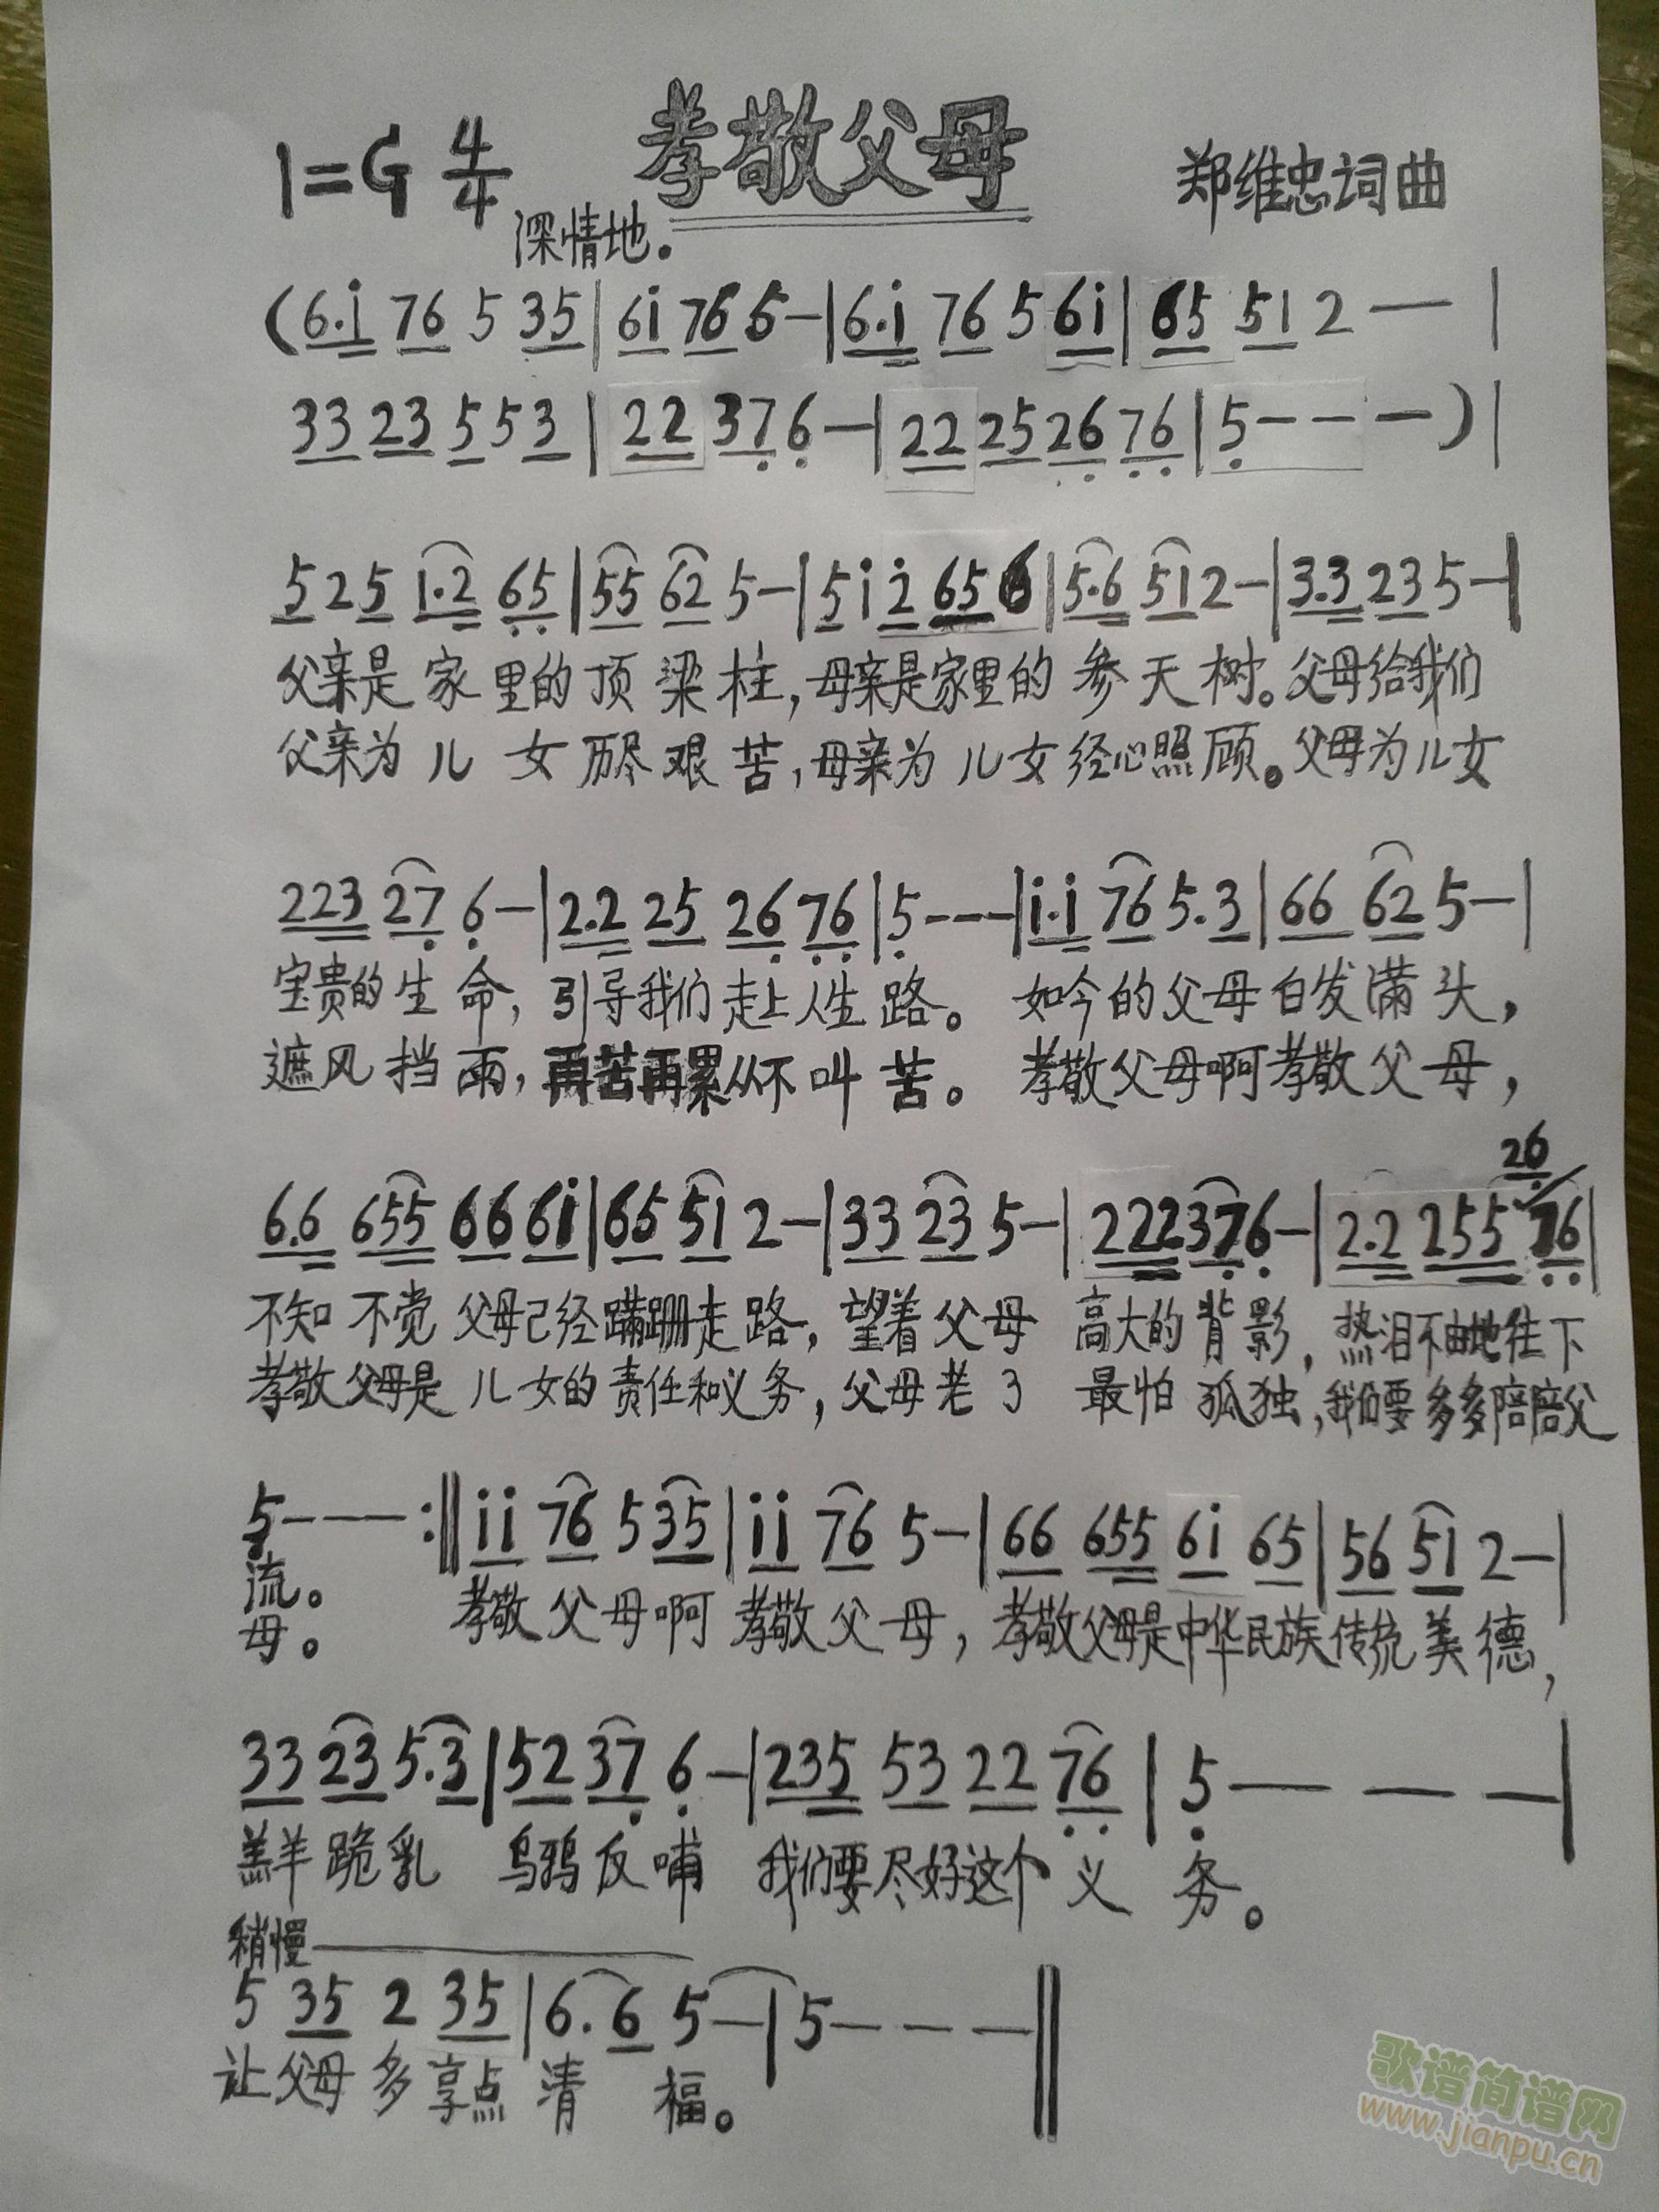 孝敬父母
1=G 4/4
郑维忠词曲
深情地。
(6.i 76 5 35|6i 76 5—|6.i 76 5 6i|65 51 2 — |
33 23 5 5 3 | 22 37 6 —|22 25 26 76|5 - - —)|
5 2 5 1.2 65|55 62 5—|5 i 2 65 6|5.6 51 2—|3.3 23 5—|
父亲是家里的顶梁柱,母亲是家里的参天树。父母给我们
父亲为儿女历尽艰苦,母亲为儿女经心照顾。父母为儿女
223 27 6—|2.2 25 26 76|5 - - -|i.i 76 5.3|66 62 5—|
宝贵的生命,引导我们走上人生路。如今的父母白发满头,
遮风挡雨,再苦再累从不叫苦。孝敬父母啊孝敬父母,
26
6.6 655 66 6i|65 51 2—|33 23 5—|222 37 6—|2.2 255 76|
不知不觉父母已经蹒跚走路,望着父母高大的背影,热泪不由地往下
孝敬父母是儿女的责任和义务,父母老了最怕孤独,我们要多多陪陪父
5 — — — :‖ii 76 5 35|ii 76 5—|66 655 6i 65|56 51 2—|
流。孝敬父母啊孝敬父母,孝敬父母是中华民族传统美德,
母。
33 23 5.3|52 37 6—|235 53 22 76|5 — — —|
羔羊跪乳 乌鸦反哺 我们要尽好这个义务。
稍慢
5 35 2 35|6.6 5—|5 — — —‖
让父母多享点清福。
歌谱简谱网
www.jianpu.cn